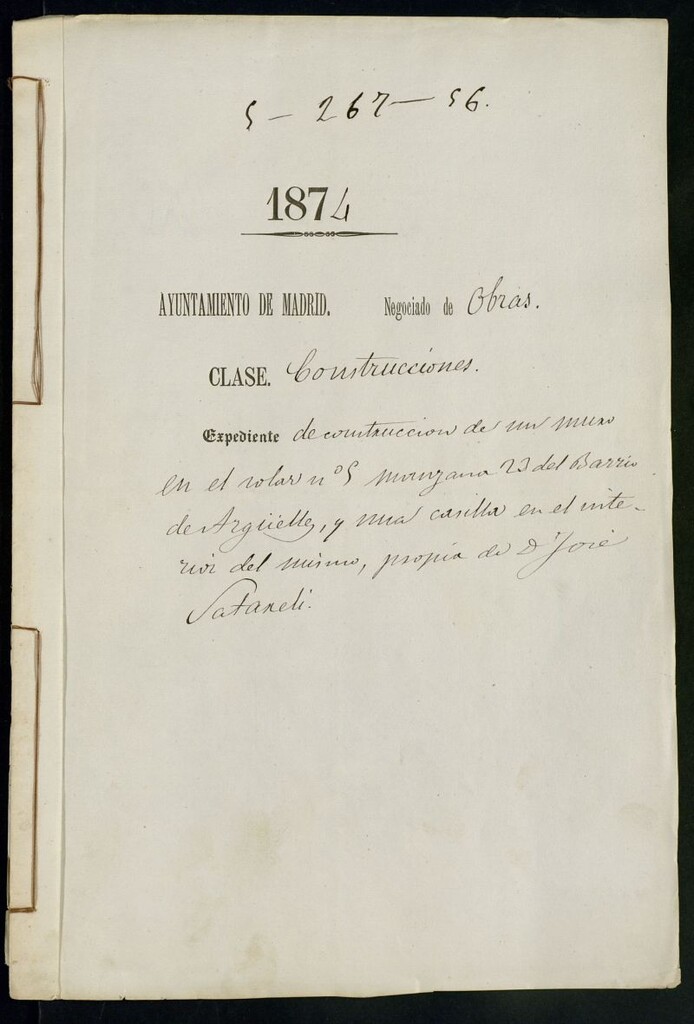 5 — 267 — 56.
1874
AYUNTAMIENTO DE MADRID. Negociado de Obras.
CLASE. Construcciones.
Expediente de construccion de un muro
en el solar nº 5 manzana 23 del Barrio
de Argüelles, y una casilla en el inte-
rior del mismo, propia de D José
Sataneli.